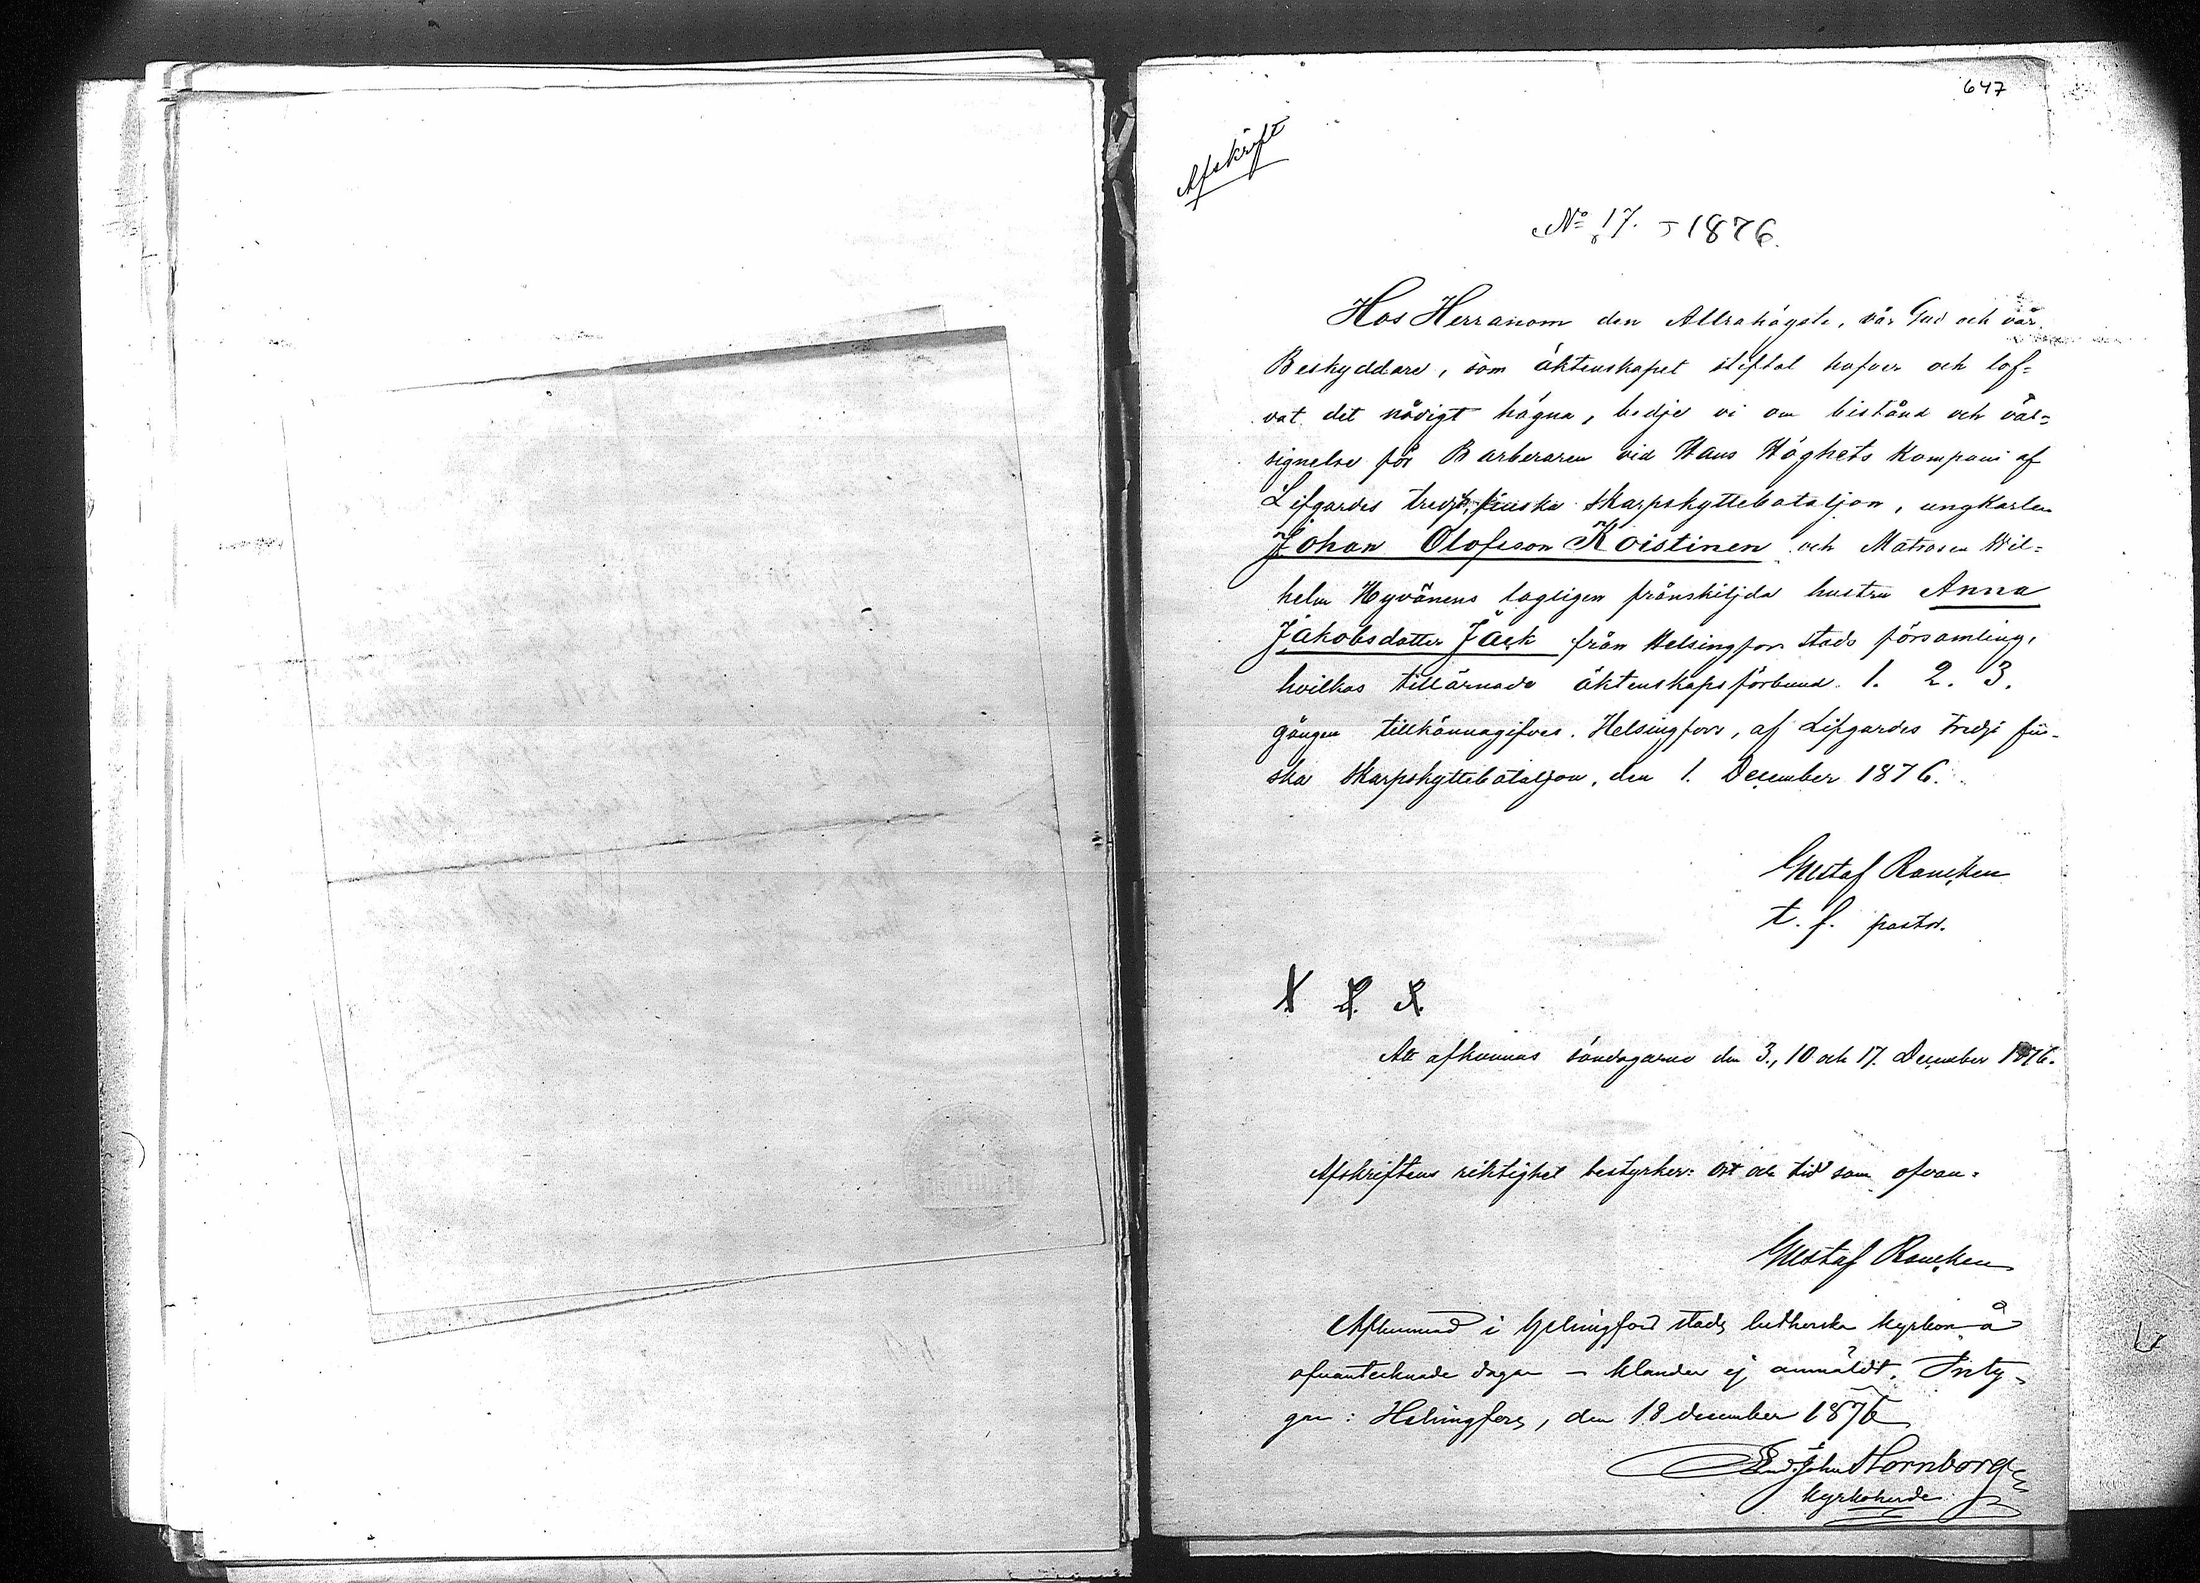 647
Afskrift
No 17. 1876.
Hos Herranom den Allrahögste, vår Gud och vår
Beskyddare, som äktenskapet stiftat hafver och lof=
vat det nådigt hägna, bedje vi om bistånd och väl=
signelse för Barberaren vid Hans Höghets Kompani af
Lifgardes tredje finska Skarpskyttebataljon, ungkarlen
Johan Olofsson Koistinen och Matrosen Wil=
helm Hyvönens lagligen frånskiljda hustru Anna
Jakobsdotter Jäck från Helsingfors stads församling,
hvilkas tillärnade äktenskapsförbund 1. 2. 3.
gången tillkännagifves. Helsingfors, af Lifgardes tredje fin-
ska Skarpskyttebataljon, den 1. December 1876.
Gustaf Rancken
t. f. pastor.
Att afkunnas söndagarne den 3., 10 och 17. December 1876.
Afskriftens riktighet bestyrker: ort och tid som ofvan.
Gustaf Rancken
Afkunnad i Helsingfors stads lutherska kyrkor å
ofvantecknade dagar – klander ej anmäldt. Inty-
gar: Helsingfors, den 18 december 1876
John Hornborg
kyrkoherde